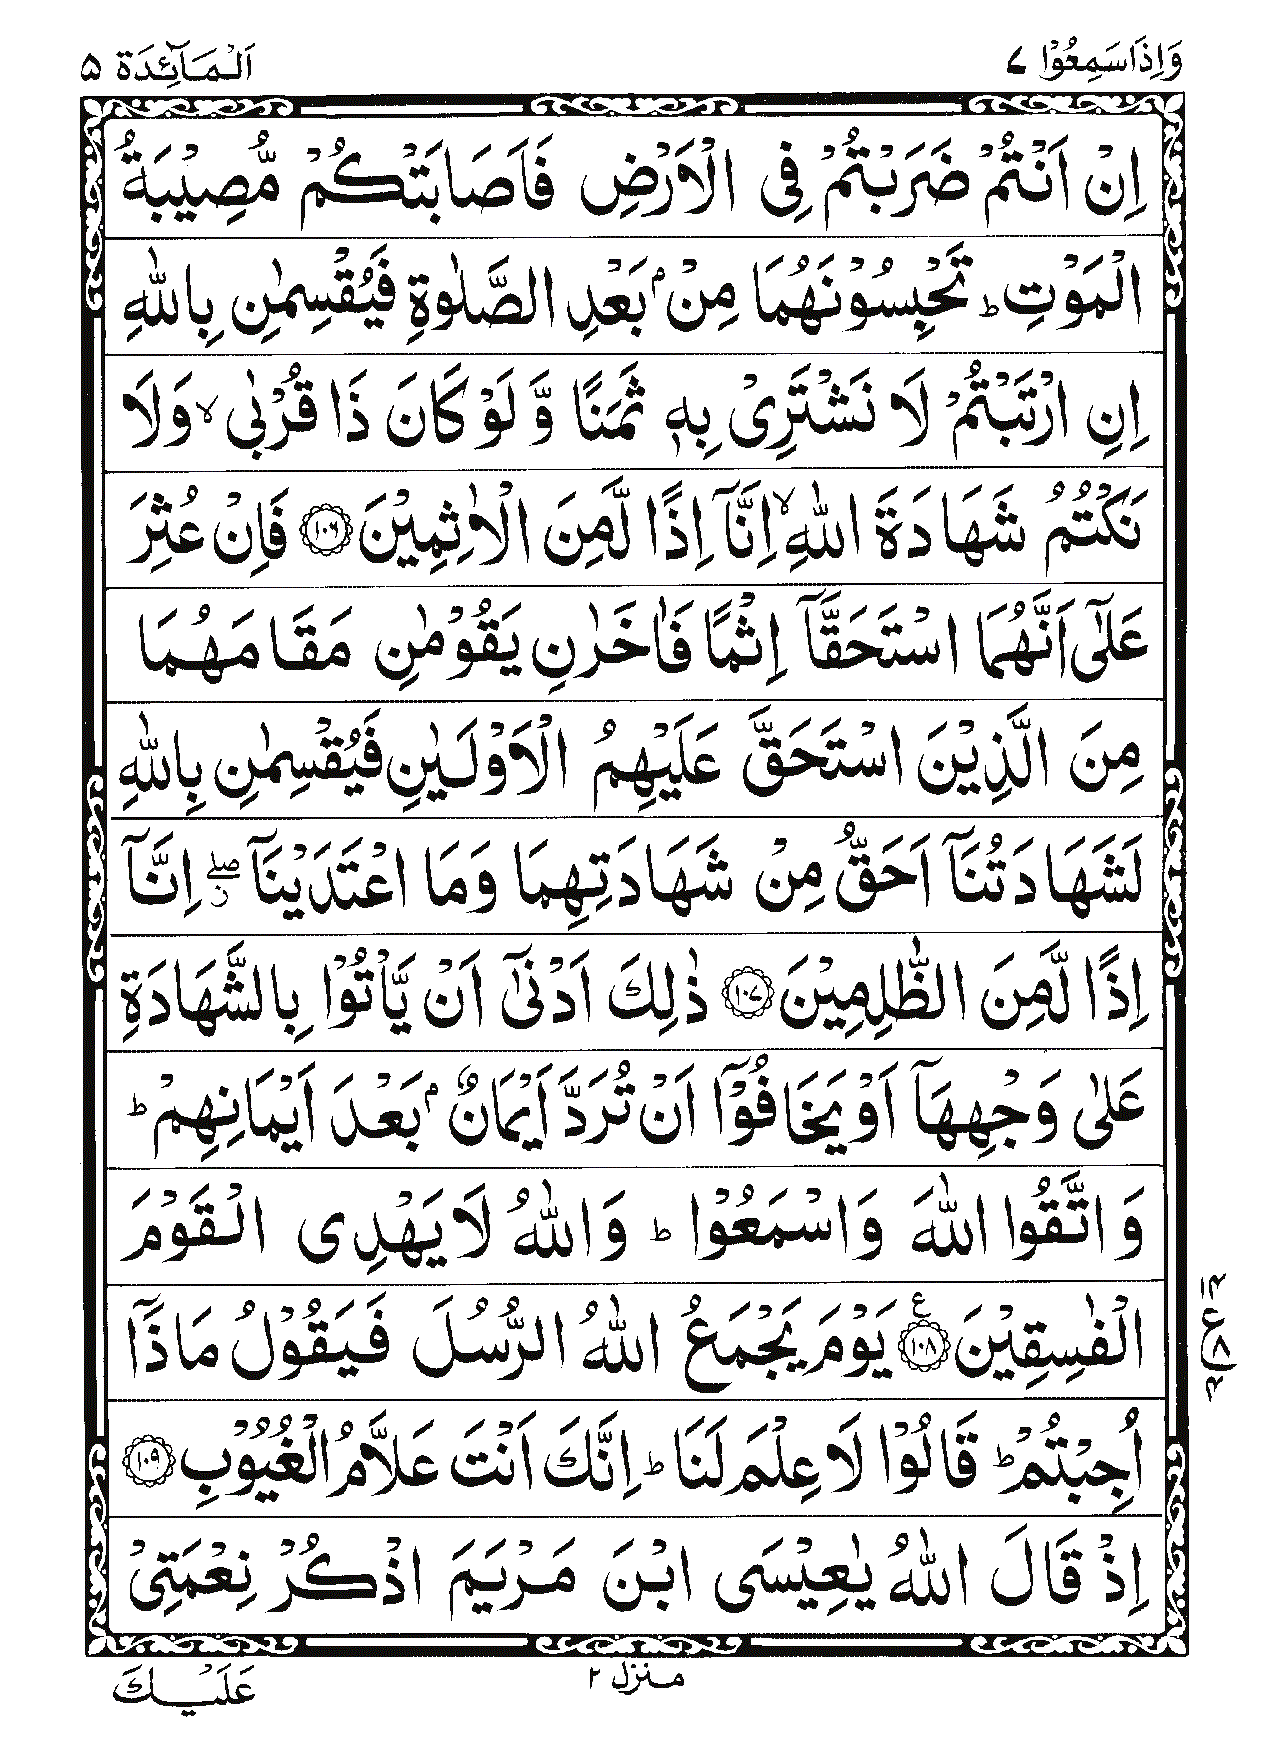 وَاِذَاسَمِعُوْا ٧ اَلْمَآئِدَة ۵
اِنْ اَنْتُمْ ضَرَبْتُمْ فِى الْاَرْضِ فَاَصَابَتْكُمْ مُّصِيْبَةُ
الْمَوْتِ ؕ تَحْبِسُوْنَهُمَا مِنْۢ بَعْدِ الصَّلٰوةِ فَيُقْسِمٰنِ بِاللّٰهِ
اِنِ ارْتَبْتُمْ لَا نَشْتَرِىْ بِهٖ ثَمَنًا وَّ لَوْ كَانَ ذَا قُرْبٰى ۙ وَلَا
نَكْتُمُ شَهَادَةَ اللّٰهِ ۙ اِنَّاۤ اِذًا لَّمِنَ الْاٰثِمِيْنَ ۝۱۰۶ فَاِنْ عُثِرَ
عَلٰٓى اَنَّهُمَا اسْتَحَقَّاۤ اِثْمًا فَاٰخَرٰنِ يَقُوْمٰنِ مَقَامَهُمَا
مِنَ الَّذِيْنَ اسْتَحَقَّ عَلَيْهِمُ الْاَوْلَيٰنِ فَيُقْسِمٰنِ بِاللّٰهِ
لَشَهَادَتُنَاۤ اَحَقُّ مِنْ شَهَادَتِهِمَا وَمَا اعْتَدَيْنَاۤ ۖ اِنَّاۤ
اِذًا لَّمِنَ الظّٰلِمِيْنَ ۝۱۰۷ ذٰلِكَ اَدْنٰٓى اَنْ يَّاْتُوْا بِالشَّهَادَةِ
عَلٰى وَجْهِهَاۤ اَوْ يَخَافُوْۤا اَنْ تُرَدَّ اَيْمَانٌۢ بَعْدَ اَيْمَانِهِمْ ؕ
وَ اتَّقُوا اللّٰهَ وَاسْمَعُوْا ؕ وَاللّٰهُ لَا يَهْدِى الْقَوْمَ
الْفٰسِقِيْنَ ۝۱۰۸ ع يَوْمَ يَجْمَعُ اللّٰهُ الرُّسُلَ فَيَقُوْلُ مَاذَاۤ
اُجِبْتُمْ ؕ قَالُوْا لَا عِلْمَ لَنَا ؕ اِنَّكَ اَنْتَ عَلَّامُ الْغُيُوْبِ ۝۱۰۹
اِذْ قَالَ اللّٰهُ يٰعِيْسَى ابْنَ مَرْيَمَ اذْكُرْ نِعْمَتِىْ
منزل ٢
عَلَيْكَ